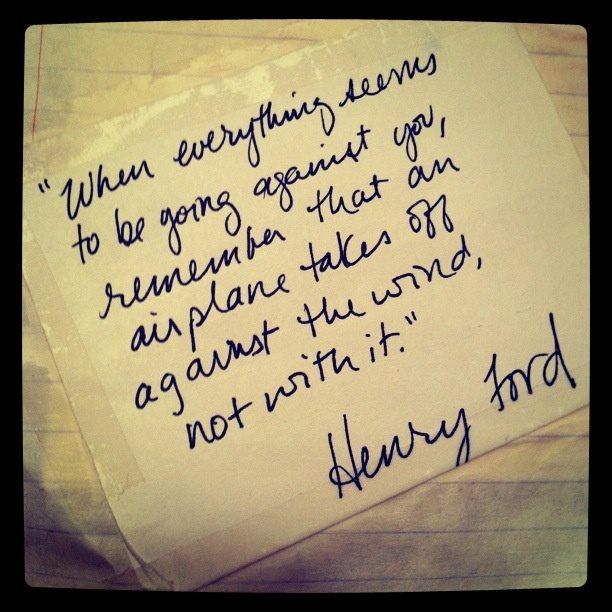 "When everything seems
to be going against you,
remember that an
airplane takes off
against the wind,
not with it."
Henry Ford